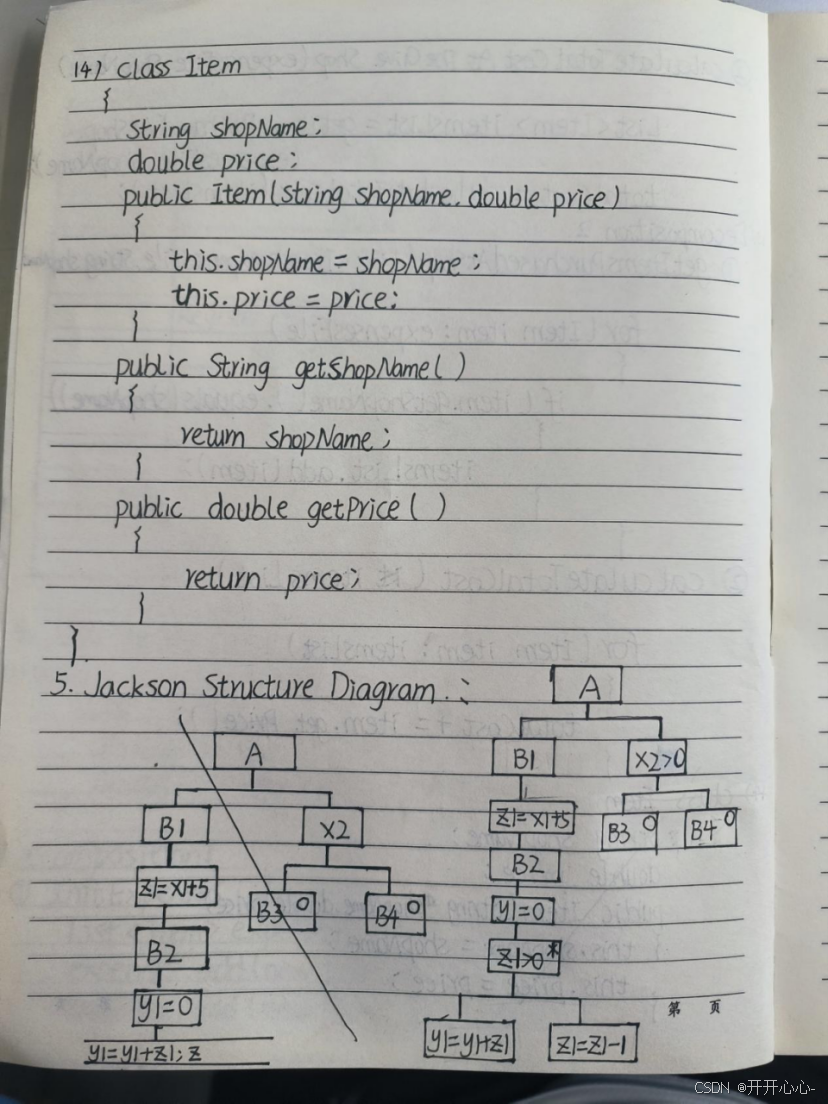 14) class Item
{
String shopName;
double price;
public Item(String shopName, double price)
{
this.shopName = shopName;
this.price = price;
}
public String getShopName()
{
return shopName;
}
public double getPrice()
{
return price;
}
}
5. Jackson Structure Diagram:
A
B1
X2
Z1=X1+5
B3 O
B4 O
B2
Y1=0
Y1=Y1+Z1; Z
A
B1
X2>0
Z1=X1+5
B3 O
B4 O
B2
Y1=0
Z1>0 *
Y1=Y1+Z1
Z1=Z1-1
第 页
CSDN @开开心心-